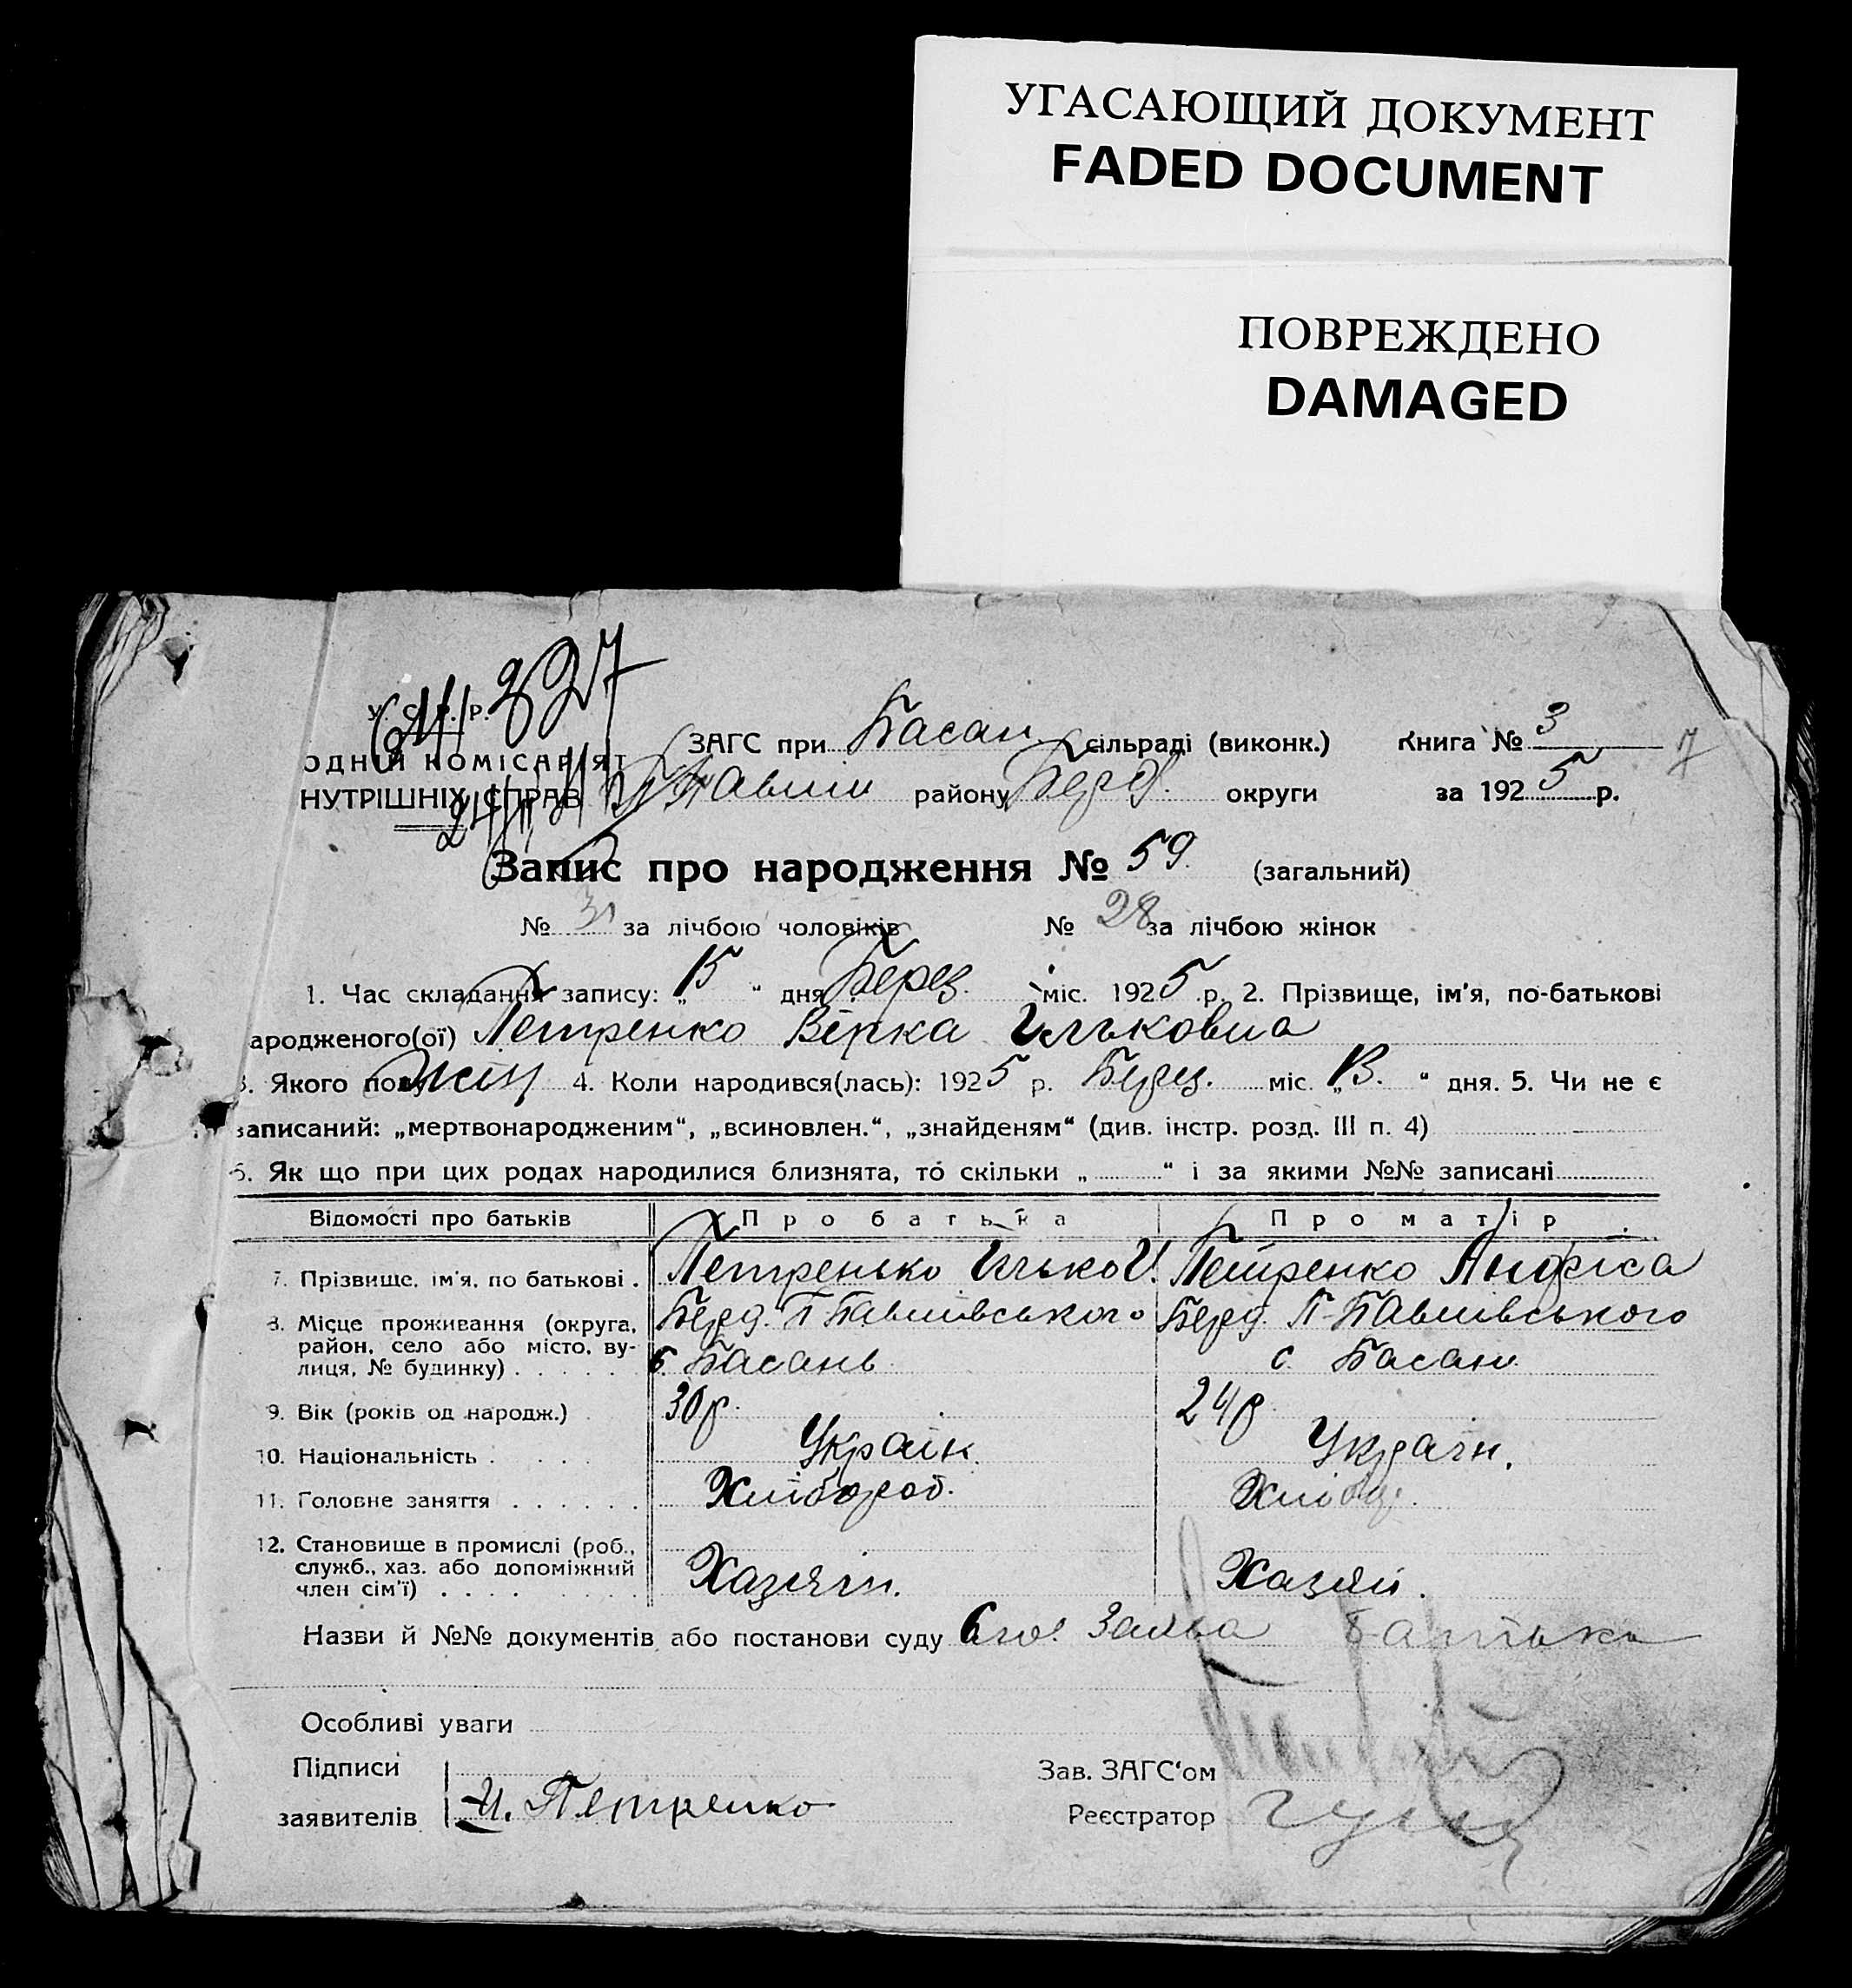 УГАСАЮЩИЙ ДОКУМЕНТ
FADED DOCUMENT
ПОВРЕЖДЕНО
DAMAGED
У. С. Р. Р.
ОДНІЙ КОМІСАРІЯТ
НУТРІШНІХ СПРАВ
827
ЗАГС при Басан. сільраді (виконк.) Книга № 3
7
району Берд. округи за 1925 р.
Запис про народження № 59. (загальний)
№ 31 за лічбою чоловіків № 28 за лічбою жінок
1. Час складання запису: „15“ дня Берез. міс. 1925 р. 2. Прізвище, ім'я, по-батькові
ародженого(ої) Петренко Вірка Ільковна
3. Якого полу Жін 4. Коли народився(лась): 1925 р. Берез. міс. „13.“ дня. 5. Чи не є
записаний: „мертвонародженим“, „всиновлен.“, „знайденям“ (див. інстр. розд. III п. 4)
6. Як що при цих родах народилися близнята, то скільки „ “ і за якими №№ записані
Відомості про батьків Про батька Про матір
7. Прізвище, ім'я, по батькові . Петренько Ілько І. Петренко Анфіса
8. Місце проживання (округа, Берд. П-Павлівського Берд. П-Павлівського
район, село або місто, ву-
лиця, № будинку) . . . . . с. Басань с. Басань
9. Вік (років од народж.) 30 р. 24 р.
10. Національність . . . . Україн. Україн.
11. Головне заняття . . . . . . Хлібороб. Хлібор.
12. Становище в промислі (роб.,
служб., хаз. або допоміжний Хазяїн. Хазяй.
член сім'ї) . . . .
Назви й №№ документів або постанови суду Заява Батька
Особливі уваги
Підписи Зав. ЗАГС'ом
заявителів И. Петренко Реєстратор